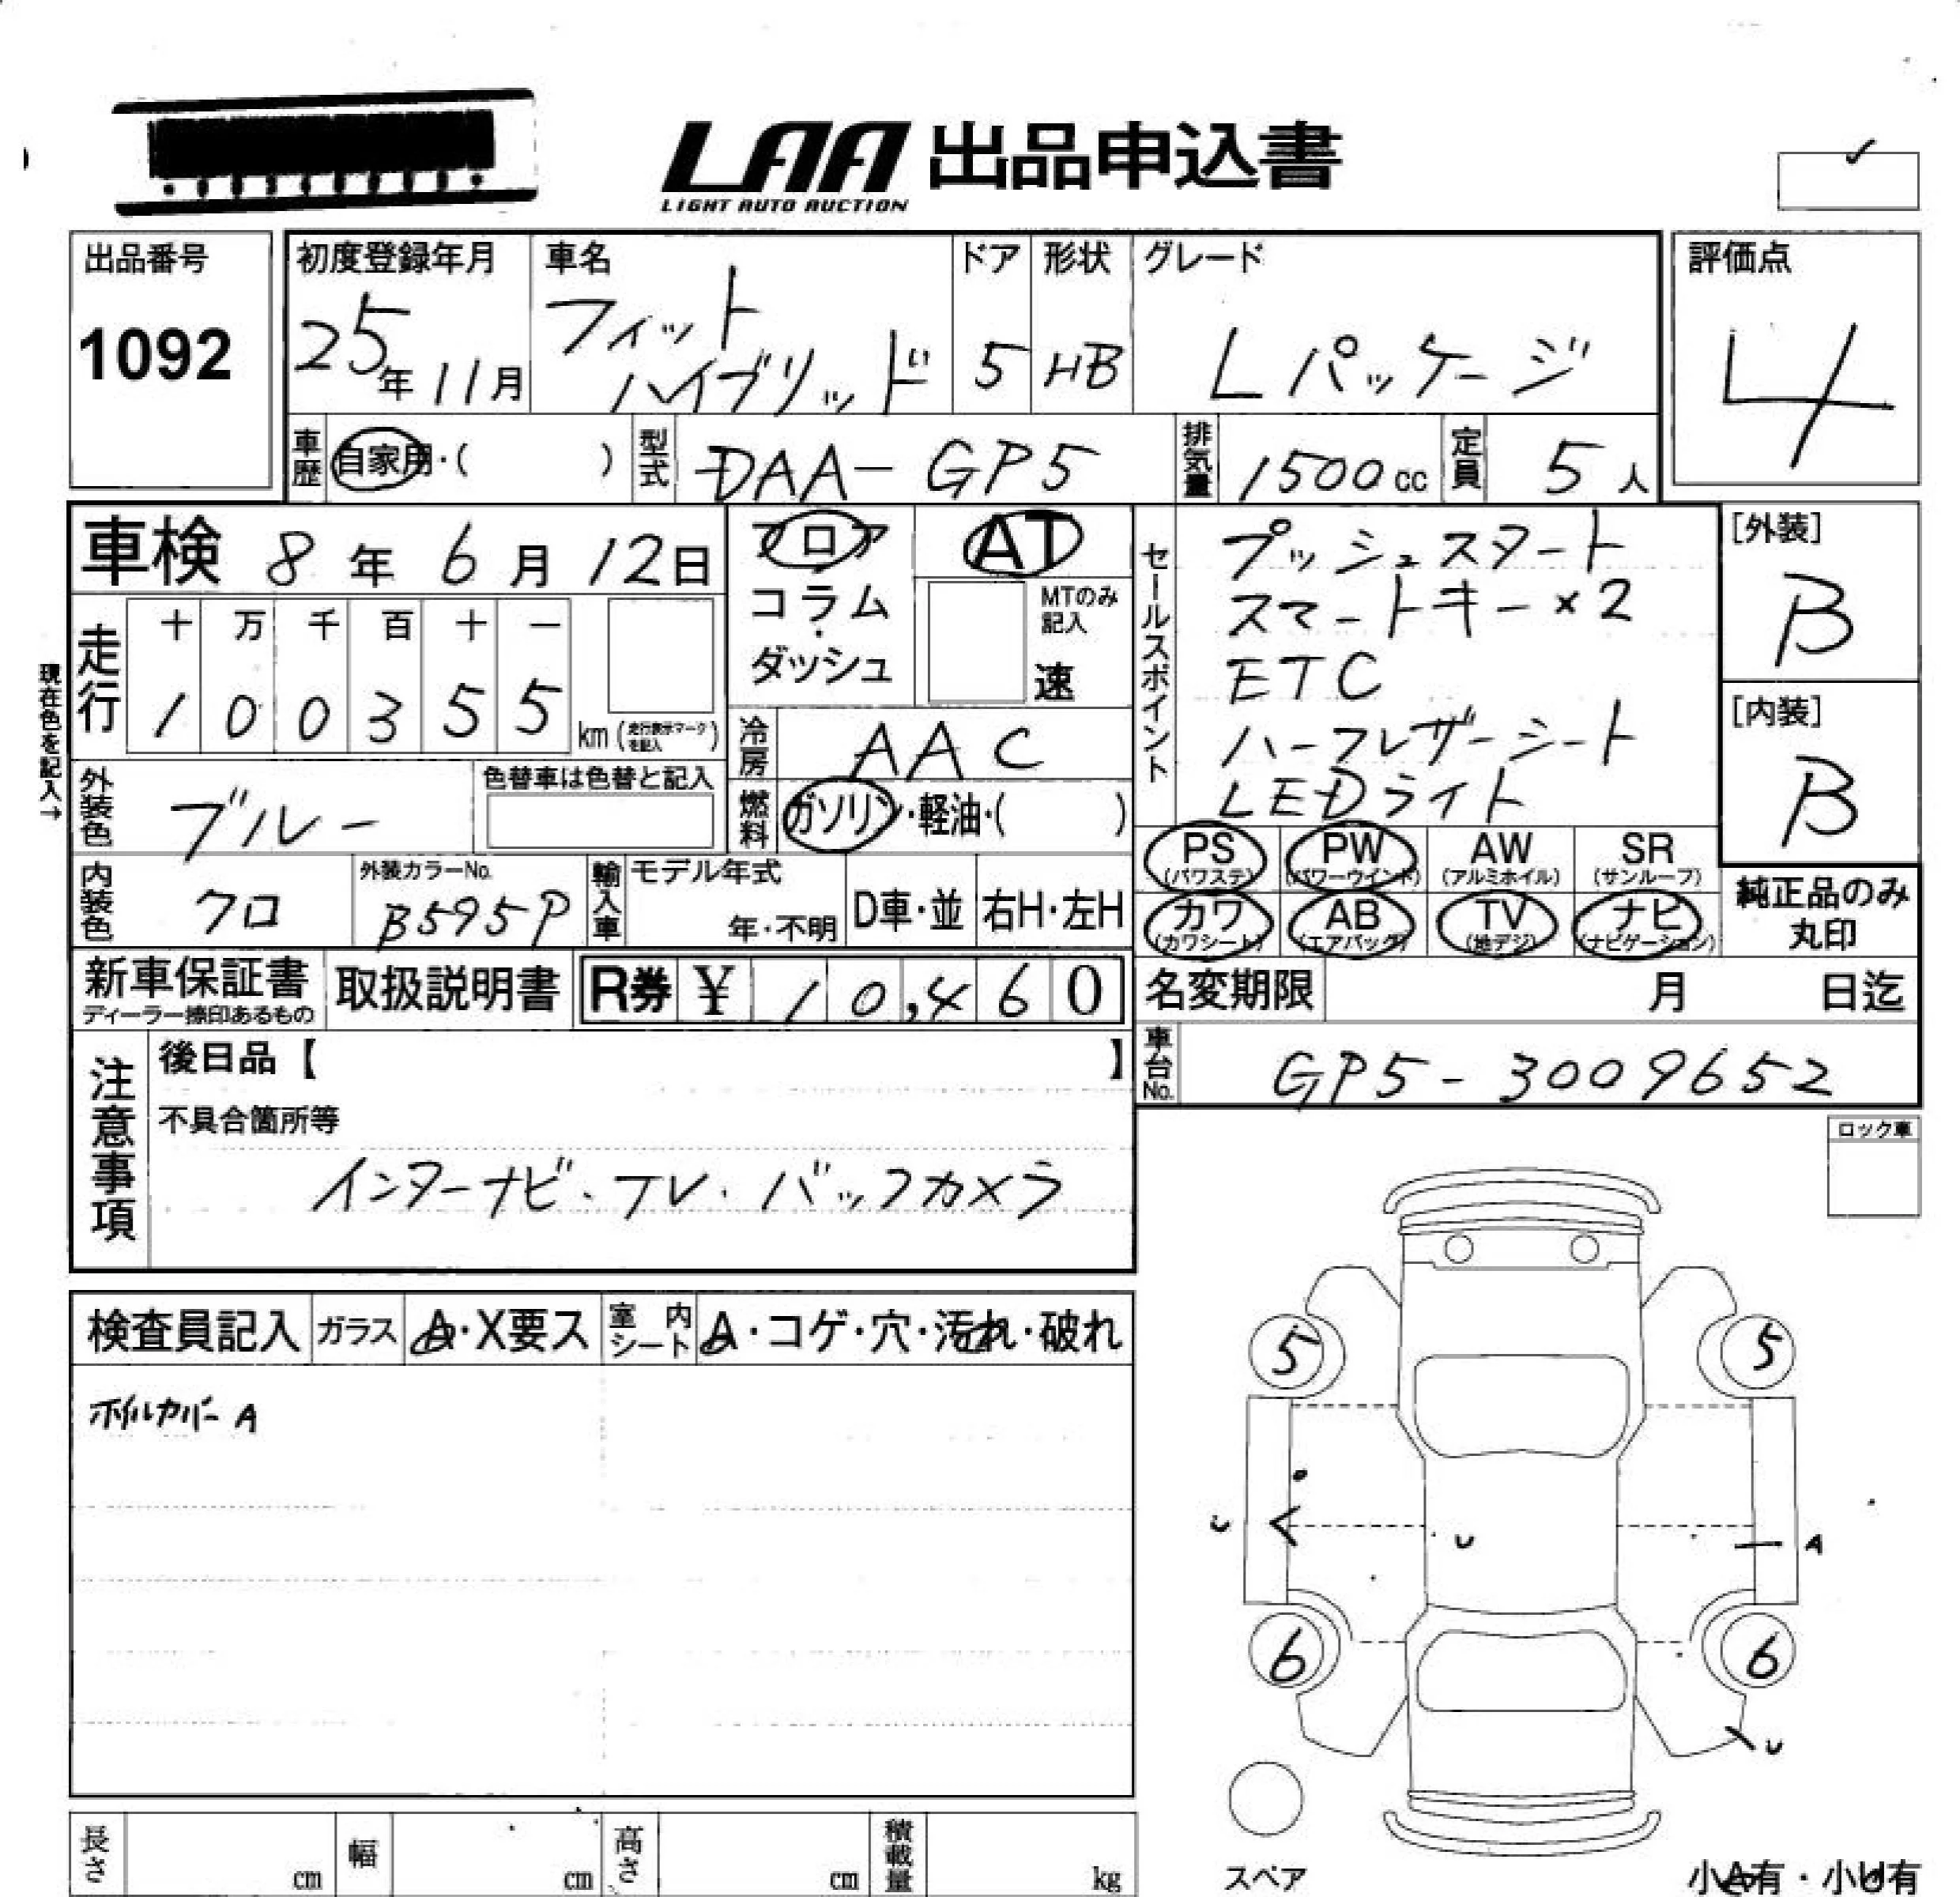 LAA 出品申込書
LIGHT AUTO AUCTION
出品番号
1092
初度登録年月
25年11月
車名
フィット
ハイブリッド
ドア
5
形状
HB
グレード
Lパッケージ
評価点
4
車歴
自家用・( )
型式
DAA-GP5
排気量
1500cc
定員
5人
車検 8年6月12日
フロア
コラム
・
ダッシュ
AT
MTのみ記入
速
セールスポイント
プッシュスタート
スマートキー×2
ETC
ハーフレザーシート
LEDライト
[外装]
B
[内装]
B
現在色を記入→
走行
十 万 千 百 十 一
1 0 0 3 5 5
km(走行表示マークを記入)
冷房
AAC
外装色
ブルー
色替車は色替と記入
燃料
ガソリン・軽油・( )
PS (パワステ)
PW (パワーウインド)
AW (アルミホイル)
SR (サンルーフ)
カワ (カワシート)
AB (エアバック)
TV (地デジ)
ナビ (ナビゲーション)
純正品のみ
丸印
内装色
クロ
外装カラーNo.
B595P
輸入車
モデル年式
年・不明
D車・並
右H・左H
新車保証書
ディーラー捺印あるもの
取扱説明書
R券 ¥ 10,460
名変期限 月 日迄
車台No.
GP5-3009652
注意事項
後日品【 】
不具合箇所等
インターナビ・TV・バックカメラ
ロック車
検査員記入
ガラス
A・X要ス
室内シート
A・コゲ・穴・汚れ・破れ
ホイルカバーA
5 5
C U A
6 6
U
スペア
小A有・小U有
長さ cm
幅 cm
高さ cm
積載量 kg